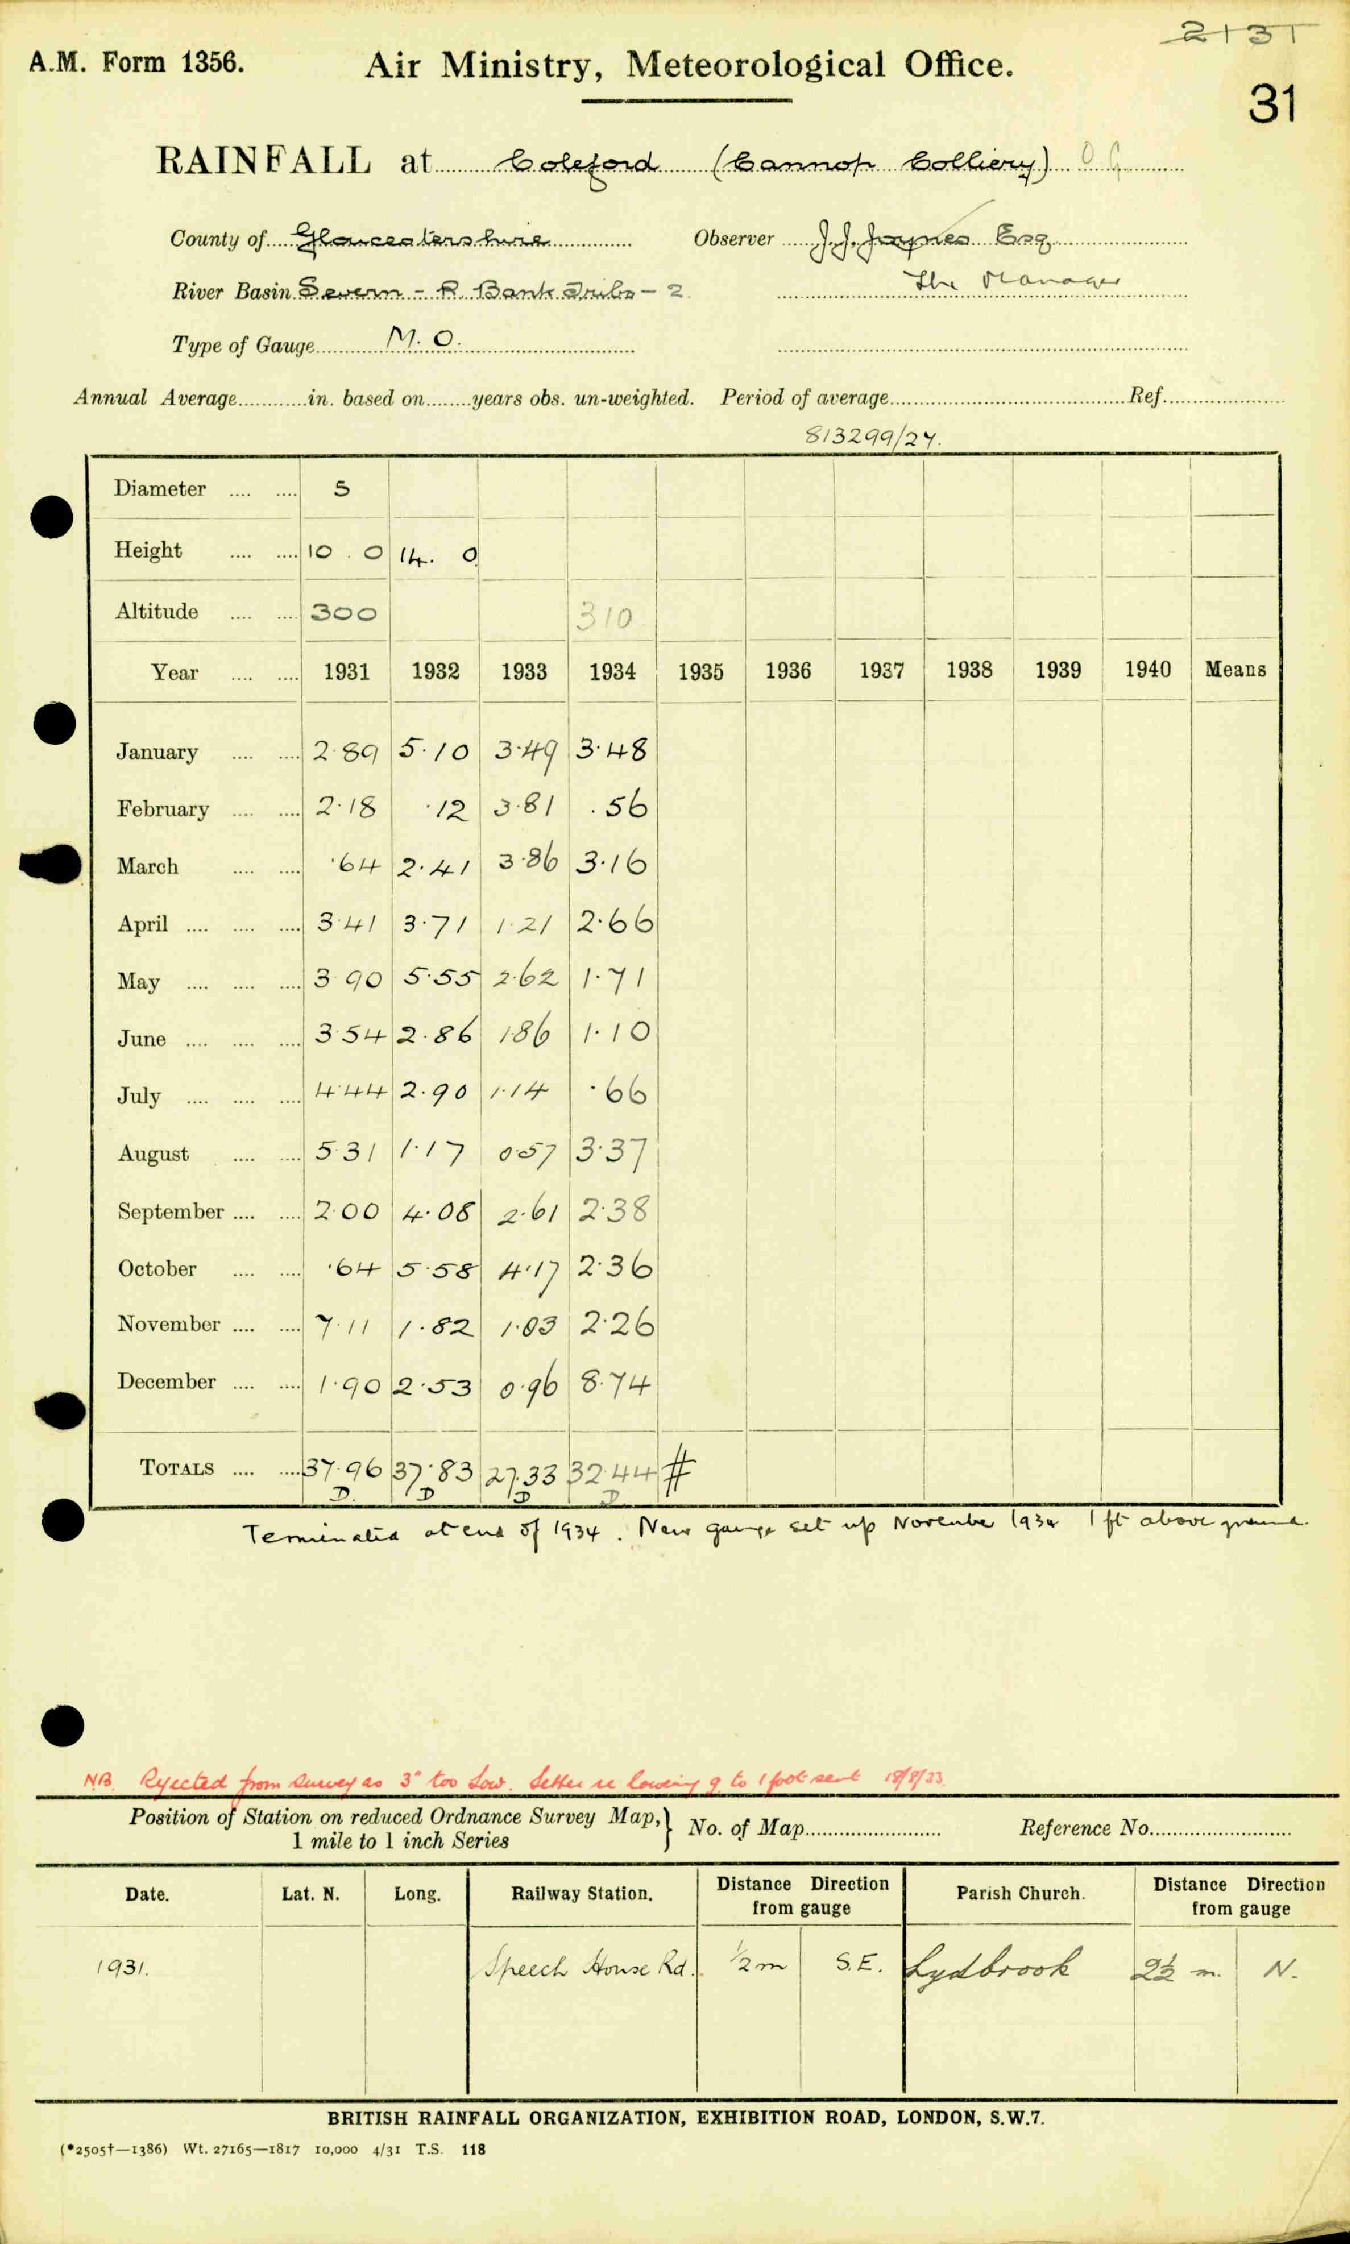 2131
A.M. Form 1356.
Air Ministry, Meteorological Office.
31
RAINFALL at Coleford (Cannop Colliery) O G
County of Gloucestershire Observer J.J. Joynes Esq
River Basin Severn - R Bank Tribs - 2 The Manager
Type of Gauge M.O.
Annual Average in. based on years obs. un-weighted. Period of average Ref.
813299/27.
Diameter .... .... 5
Height .... .... 10 . 0 14. 0
Altitude .... .... 300 310
Year .... .... 1931 1932 1933 1934 1935 1936 1937 1938 1939 1940 Means
January .... .... 2.89 5.10 3.49 3.48
February .... .... 2.18 .12 3.81 .56
March .... .... .64 2.41 3.86 3.16
April .... .... .... 3.41 3.71 1.21 2.66
May .... .... .... 3.90 5.55 2.62 1.71
June .... .... .... 3.54 2.86 1.86 1.10
July .... .... .... 4.44 2.90 1.14 .66
August .... .... 5.31 1.17 0.57 3.37
September .... .... 2.00 4.08 2.61 2.38
October .... .... .64 5.58 4.17 2.36
November .... .... 7.11 1.82 1.03 2.26
December .... .... 1.90 2.53 0.96 8.74
TOTALS .... .... 37.96 37.83 27.33 32.44 #
D. D D D
Terminated at end of 1934. New gauge set up November 1934 1 ft above ground.
N.B. Rejected from Survey as 3" too Low. Letter re lowering g. to 1 foot sent 18/8/33
Position of Station on reduced Ordnance Survey Map, } No. of Map Reference No.
1 mile to 1 inch Series
Date. Lat. N. Long. Railway Station. Distance Direction from gauge Parish Church. Distance Direction from gauge
1931. Speech House Rd. ½ m S.E. Lydbrook 2½ m. N.
BRITISH RAINFALL ORGANIZATION, EXHIBITION ROAD, LONDON, S.W.7.
(*2505†—1386) Wt. 27165—1817 10,000 4/31 T.S. 118